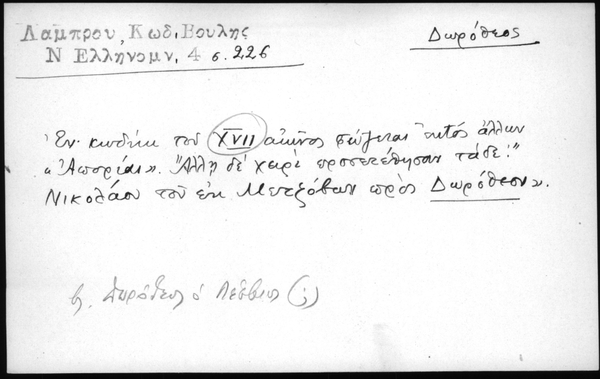 Λάμπρου, Κώδ. Βουλῆς
Ν Ελληνομν. 4 σ. 226
Δωρόθεος
Ἐν κώδηκι τοῦ XVII αἰῶνος σώζεται ἐκτός ἄλλων
« Ἀπορίαι». "Ἄλλη δέ χειρί προσετέθησαν τάδε:"
Νικολάου τοῦ ἐκ Μετζόβων πρός Δωρόθεον».
β. Δωρόθεος ὁ Λέσβιος (;)